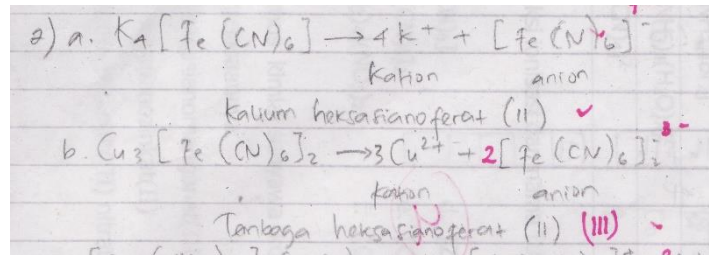 2) a. K4 [Fe (CN)6] → 4 K+ + [Fe (CN)6]-
Kation anion
Kalium heksasianoferat (II) ✓
3-
b. Cu3 [Fe (CN)6]2 → 3 Cu2+ + 2 [Fe (CN)6]
kation anion
Tembaga heksasianoferat (II) (III)